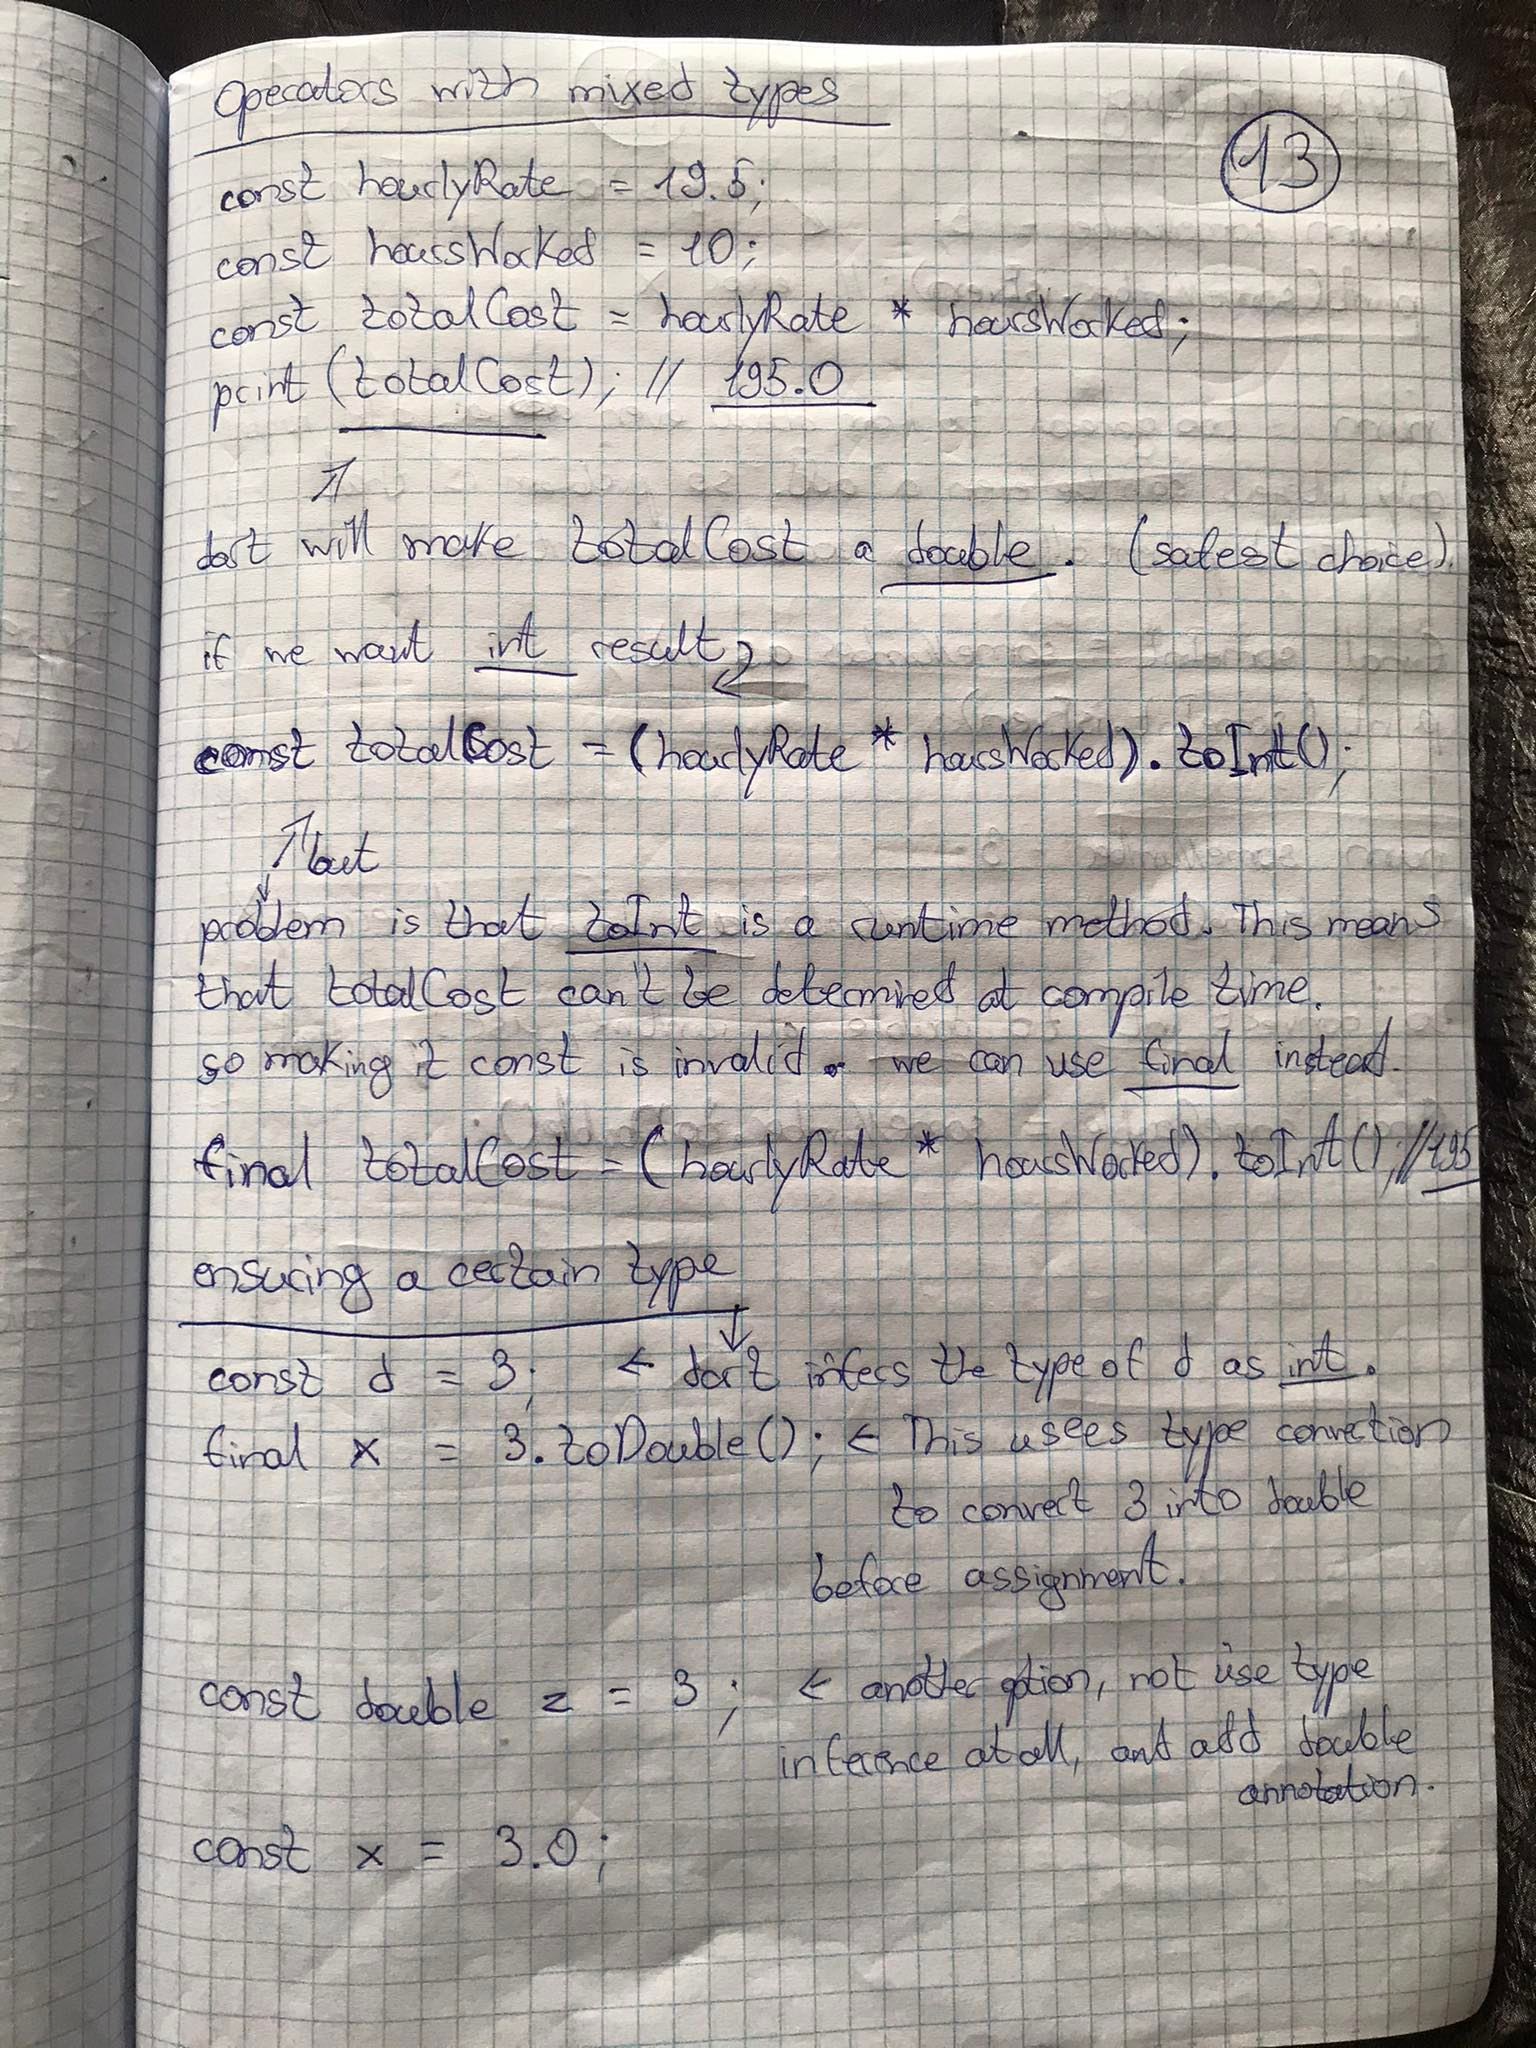 Operators with mixed types
13
const hourlyRate = 19.5;
const hoursWorked = 10;
const totalCost = hourlyRate * hoursWorked;
print (totalCost); // 195.0
dart will make totalCost a double. (safest choice).
if we want int result
const totalCost = (hourlyRate * hoursWorked). toInt();
but
problem is that toInt is a runtime method. This means
that totalCost can't be determined at compile time.
so making it const is invalid. we can use final instead.
final totalCost = (hourlyRate * hoursWorked). toInt(); // 195
ensuring a certain type
const d = 3; ← dart infers the type of d as int.
final x = 3. toDouble(); ← This usees type convertion
to convert 3 into double
before assignment.
const double z = 3; ← another option, not use type
inference at all, and add double
annotation.
const x = 3.0;